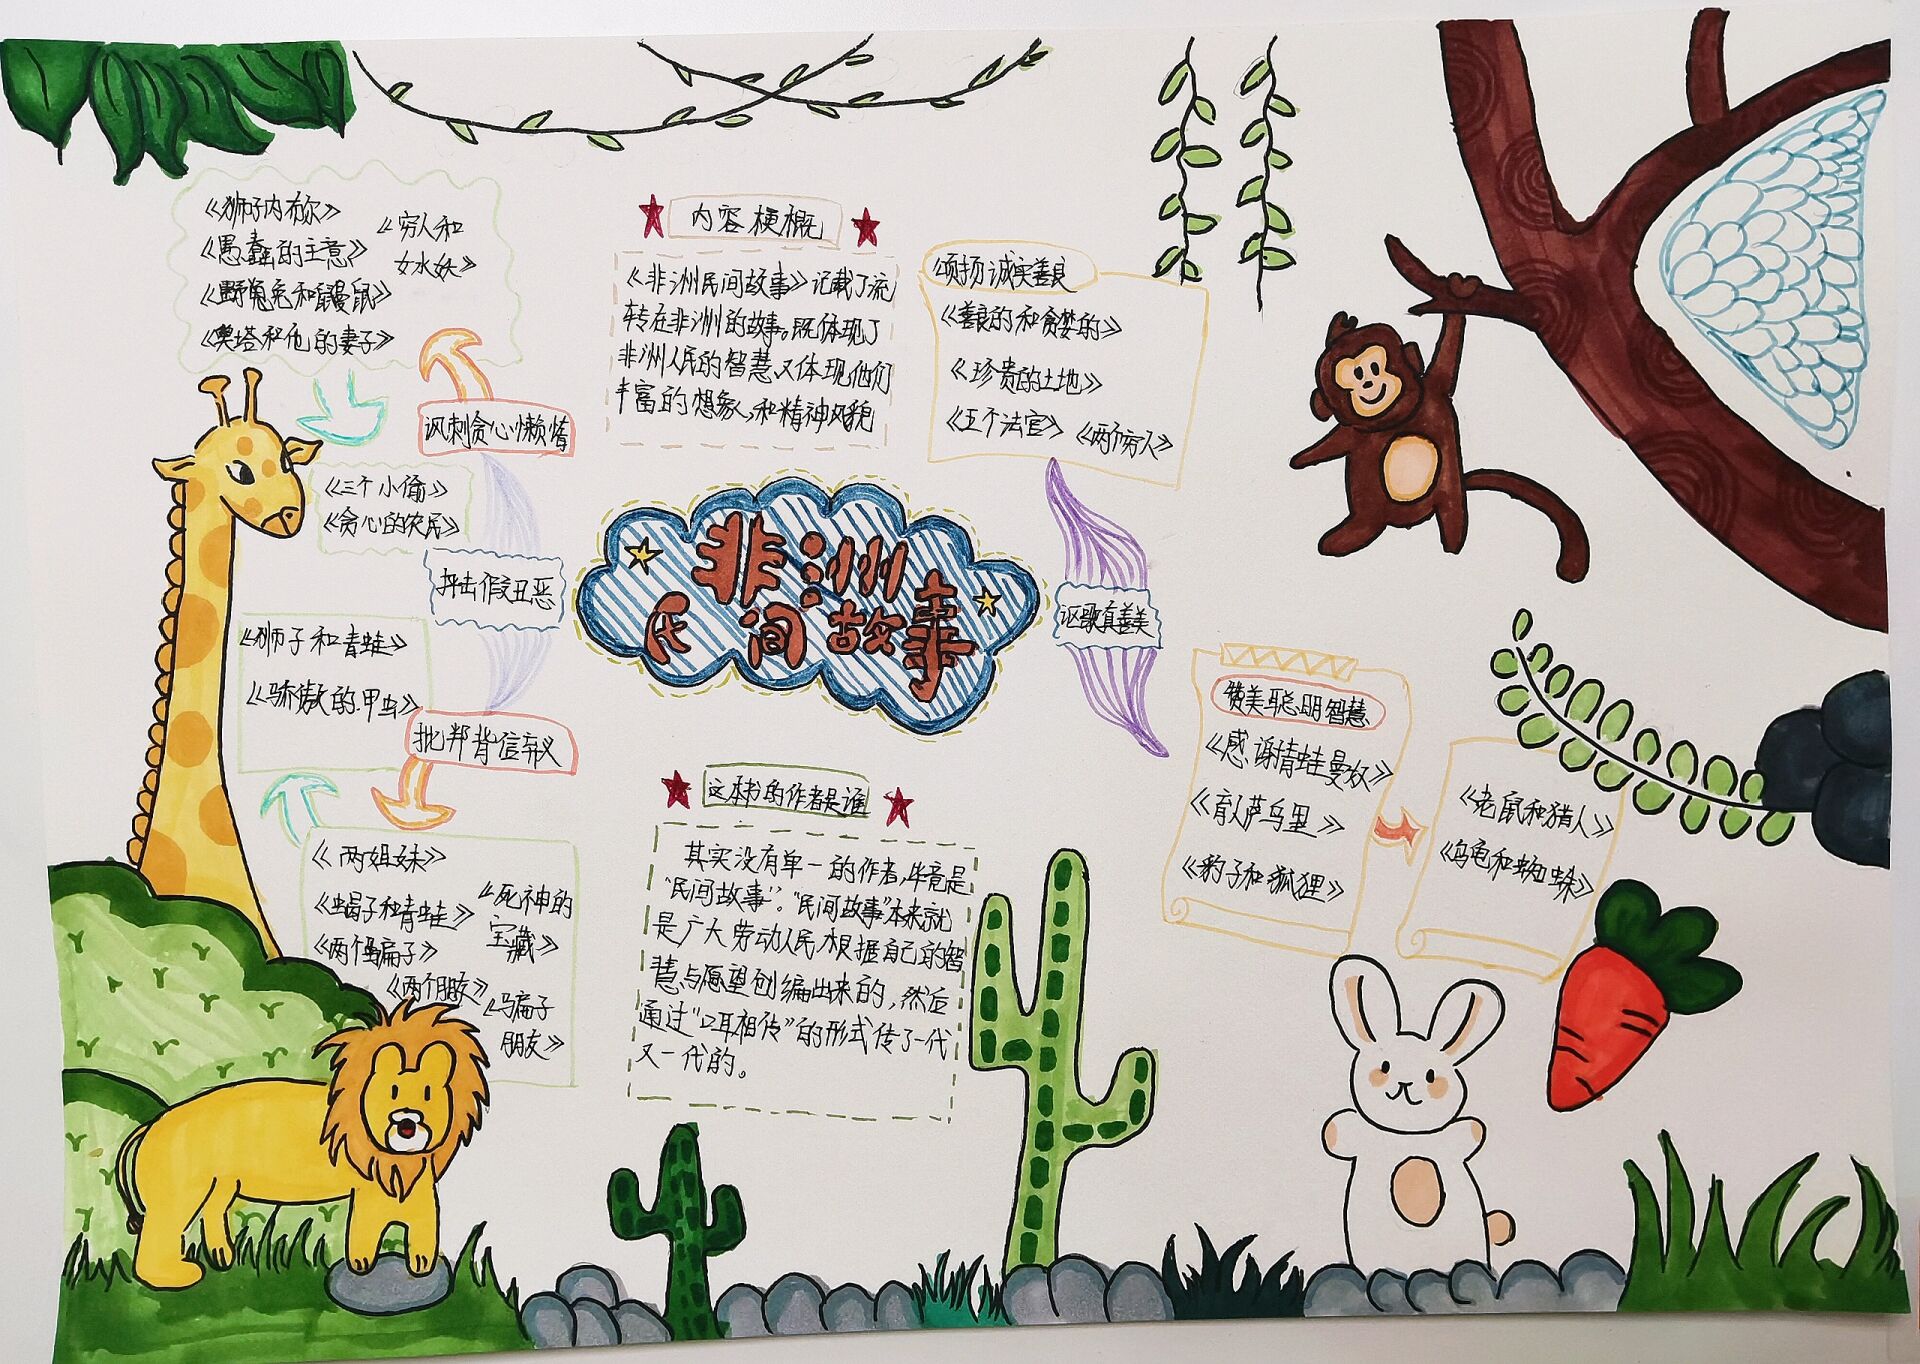 《狮子内布尔》
《愚蠢的主意》
《野兔兔和鼹鼠》
《奥塔和他的妻子》
《穷人和
女水妖》
讽刺贪心懒惰
《三个小偷》
《贪心的农民》
抨击假丑恶
《狮子和青蛙》
《骄傲的甲虫》
批判背信弃义
《两姐妹》
《蝎子和青蛙》
《两个骗子》
《两个朋友》
《死神的
宝藏》
《骗子
朋友》
内容梗概
《非洲民间故事》记载了流
转在非洲的故事。既体现了
非洲人民的智慧又体现他们
丰富的想象,和精神风貌
非洲
民间故事
这本书的作者是谁
其实没有单一的作者,毕竟是
“民间故事”。“民间故事”本来就
是广大劳动人民根据自己的智
慧与愿望创编出来的,然后
通过“口耳相传”的形式传了一代
又一代的。
颂扬诚实善良
《善良的和贪婪的》
《珍贵的土地》
《五个法官》
《两个穷人》
讴歌真善美
赞美聪明智慧
《感谢青蛙曼奴》
《盲人萨乌里》
《豹子和狐狸》
《老鼠和猎人》
《乌龟和蜘蛛》